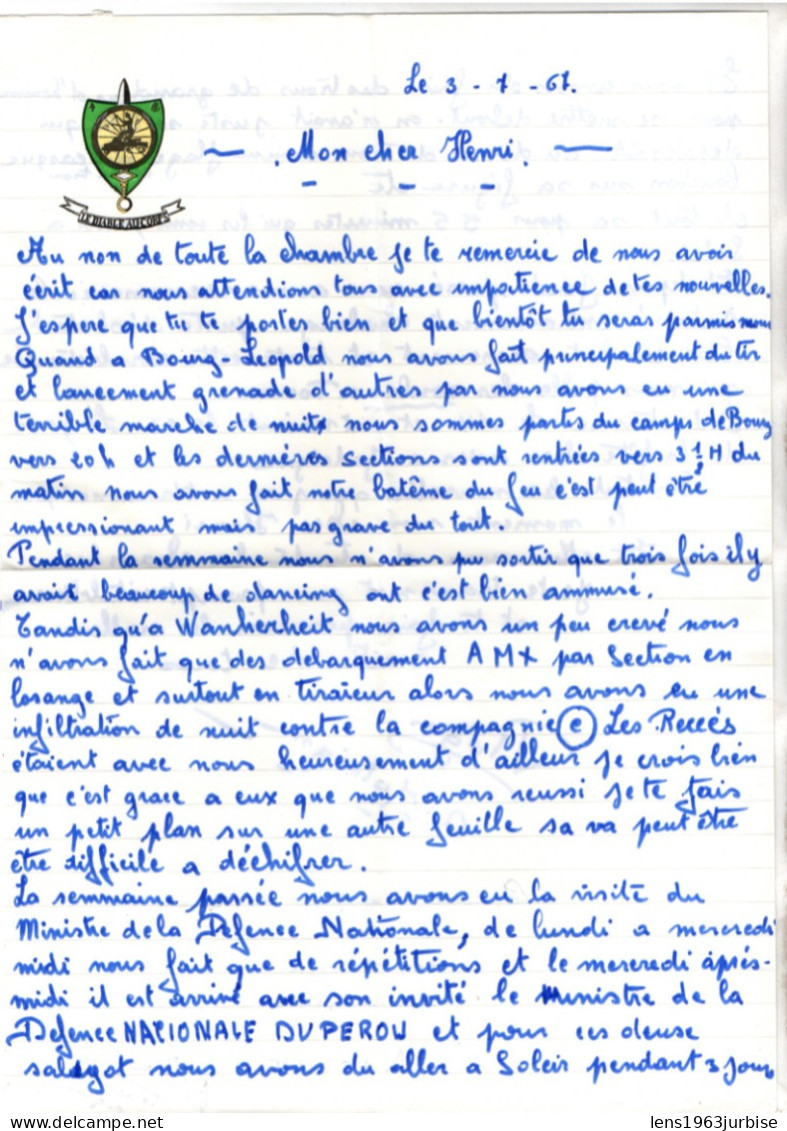 Le 3 - 7 - 67.
Mon cher Henri.
LE DIABLE AU CORPS
Au non de toute la chambre je te remercie de nous avoir
écrit car nous attendions tous avec impatience de tes nouvelles.
J'espere que tu te portes bien et que bientôt tu seras parmis nous
Quand a Bourg Leopold nous avons fait principalement du tir
et lancement grenade d'autres par nous avons eu une
terrible marche de nuits nous sommes partis du camps de Bourg
vers 20h et les dernières sections sont rentrées vers 3 1/2 H du
matin nous avons fait notre batême du feu c'est peut être
impressionant mais pas grave du tout.
Pendant la semmaine nous n'avons pu sortir que trois fois il y
avait beaucoup de dancing ont c'est bien ammusé.
Tandis qu'a Wanherheit nous avons un peu crevé nous
n'avons fait que des debarquement AMX par Section en
losange et surtout en tiraieur alors nous avons eu une
infiltration de nuit contre la compagnie e Les Reccés
étaient avec nous heureusement d'ailleur je crois bien
que c'est grace a eux que nous avons reussi je te fais
un petit plan sur une autre feuille sa va peut être
être difficile a déchifrer.
La semmaine passée nous avons eu la visite du
Ministre de la Défence Nationale, de lundi a mercredi
midi nous fait que de répétitions et le mercredi après-
midi il est arrivé avec son invité le Ministre de la
Defence NATIONALE DU PEROU et pour ces deuse
saligot nous avons du aller a Soleir pendant 3 jours
delcampe.net
lens1963jurbise